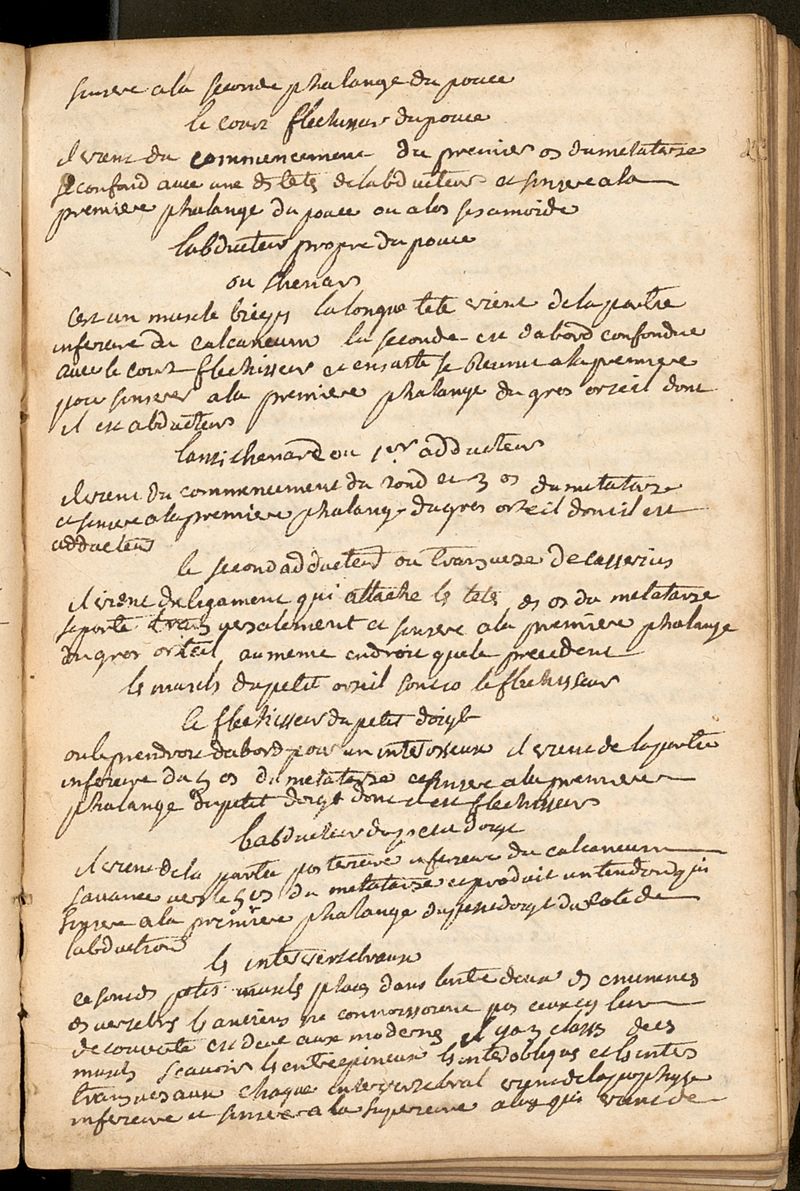 sinsere a la seconde phalange du pouce
le court flechisseur du pouce
il vient du commencement du premier os du metatarse
se confond avec une des tets de labducteur et sinsere a la
premiere phalange du pouce ou a los sesamoide
labducteur propre du pouce
ou thenar
cest un muscle la longue tete vient de la partie
inferieure du calcaneum la seconde est dabord confondue
avec le court flechisseur et ensuite se reunit a la premiere
pour sinserer a la premiere phalange du gros orteil dont
il est abducteur
lantithenard ou 1er adducteur
il vient du commencement du 2ond et 3 os du metatarse
et sinsere a la premiere phalange du gros orteil dont il est
adducteur
le second adducteur ou transverse de casserius
il vient du ligament qui attache les tets des os du metatarse
se porte transversalement et sinsere a la premiere phalange
du gros orteil au meme endroit que le precedent
les muscls du petit orteil sont 10 le flechisseur
le flechisseur du petit doigt
on le prendroit dabord pour un interosseux il vient de la partie
inferieure du 5 os du metatarse et sinsere a la premiere
phalange du petit doigt dont il est flechisseur
labducteur du petit doigt
il vient de la partie posterieure inferieure du calcaneum
savance vers le 5 os du metatarse et produit un tendon qui
sinsere a la premiere phalange du petit doigt du cote de
labduction
les intervertebraux
ce sont des petits muscls placs dans lentre deux des eminences
des vertebrs ls anciens ne connoissoient pas ceux cy leur
decouverte est due aux moderns il y a 3 classs de cs
muscls scavoir ls entreepineux ls interobliqus et ls inter
transversaux chaque intervertebral vient de lapophyse
inferieure et sinsere a la superieure celuy qui vient de